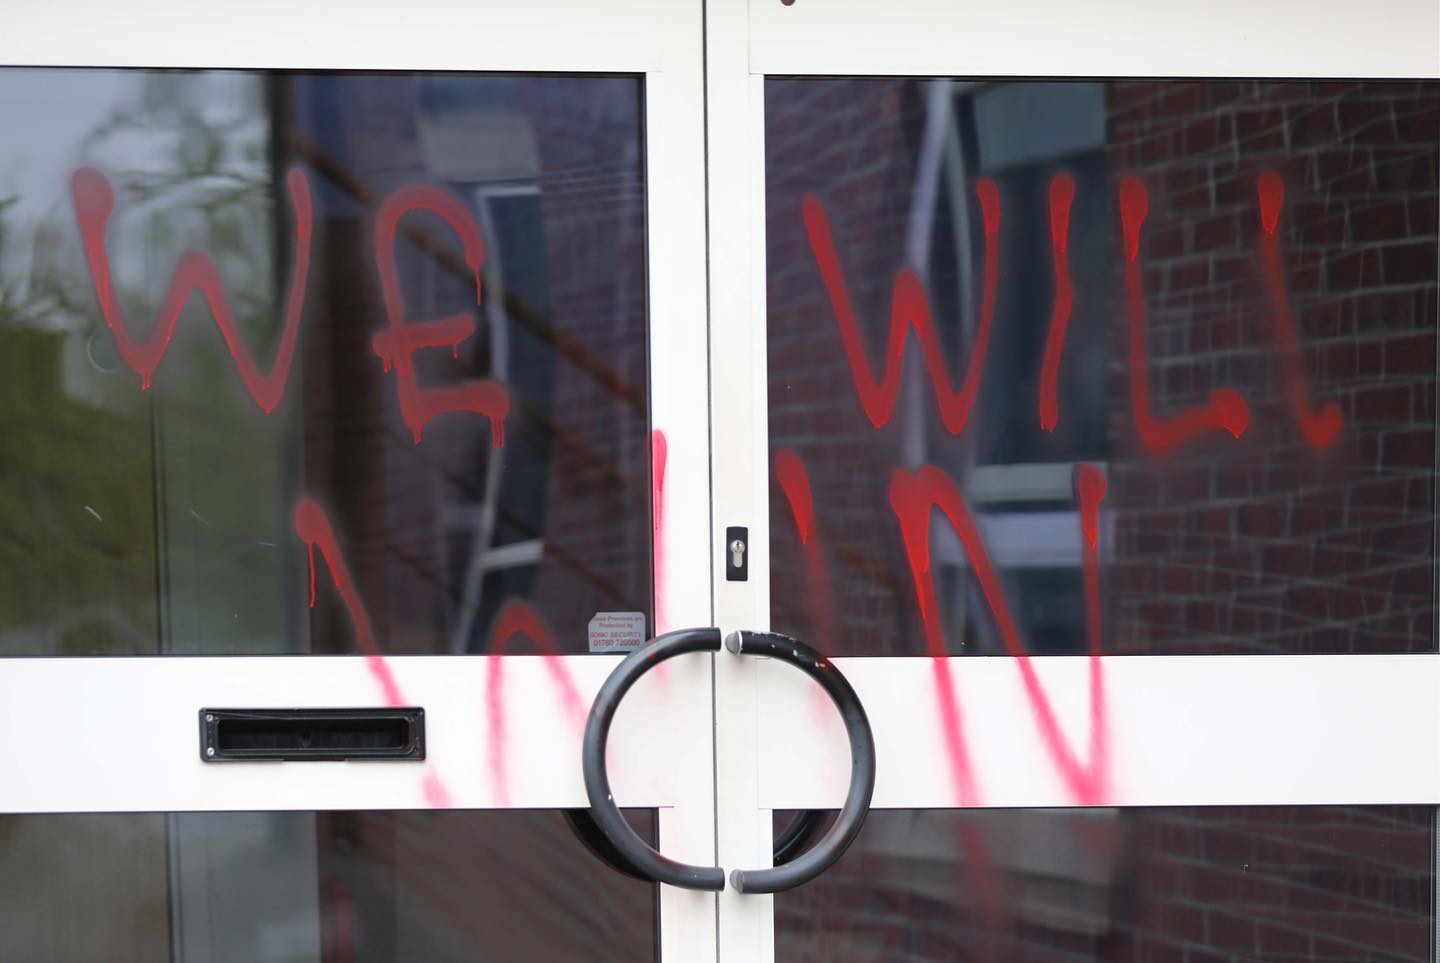 WE WILL
WIN
These Premises are
Protected by
SONIC SECURITY
01760 720500